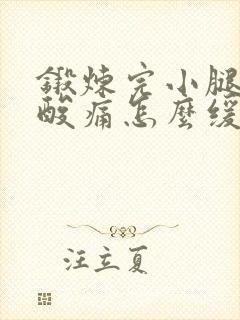 鍛煉完小腿
酸痛怎麼緩
汪立夏